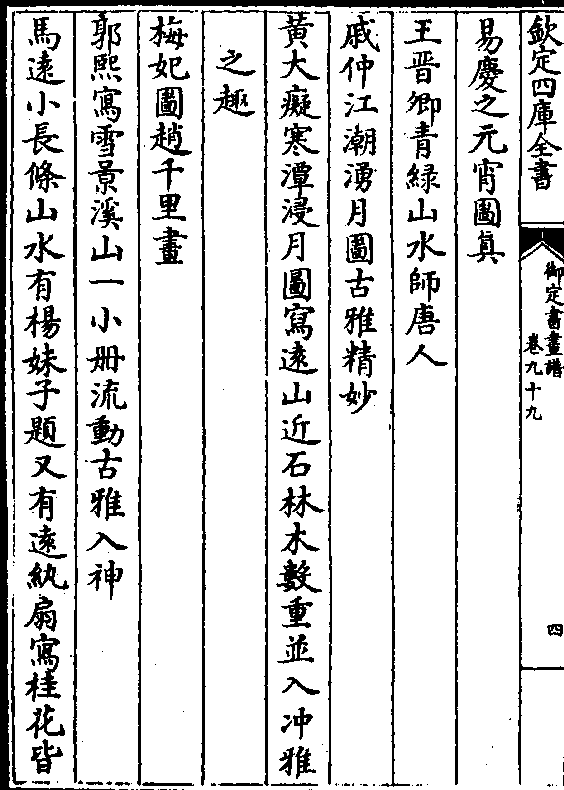 欽定四庫全書
御定書畫譜
卷九十九
四
易慶之元宵圖真
王晉卿青緑山水師唐人
戚仲江潮湧月圖古雅精妙
黃大癡寒潭浸月圖寫遠山近石林木數重並入冲雅
之趣
梅妃圖趙千里畫
郭熙寫雪景溪山一小册流動古雅入神
馬遠小長條山水有楊妹子題又有遠紈扇寫桂花皆